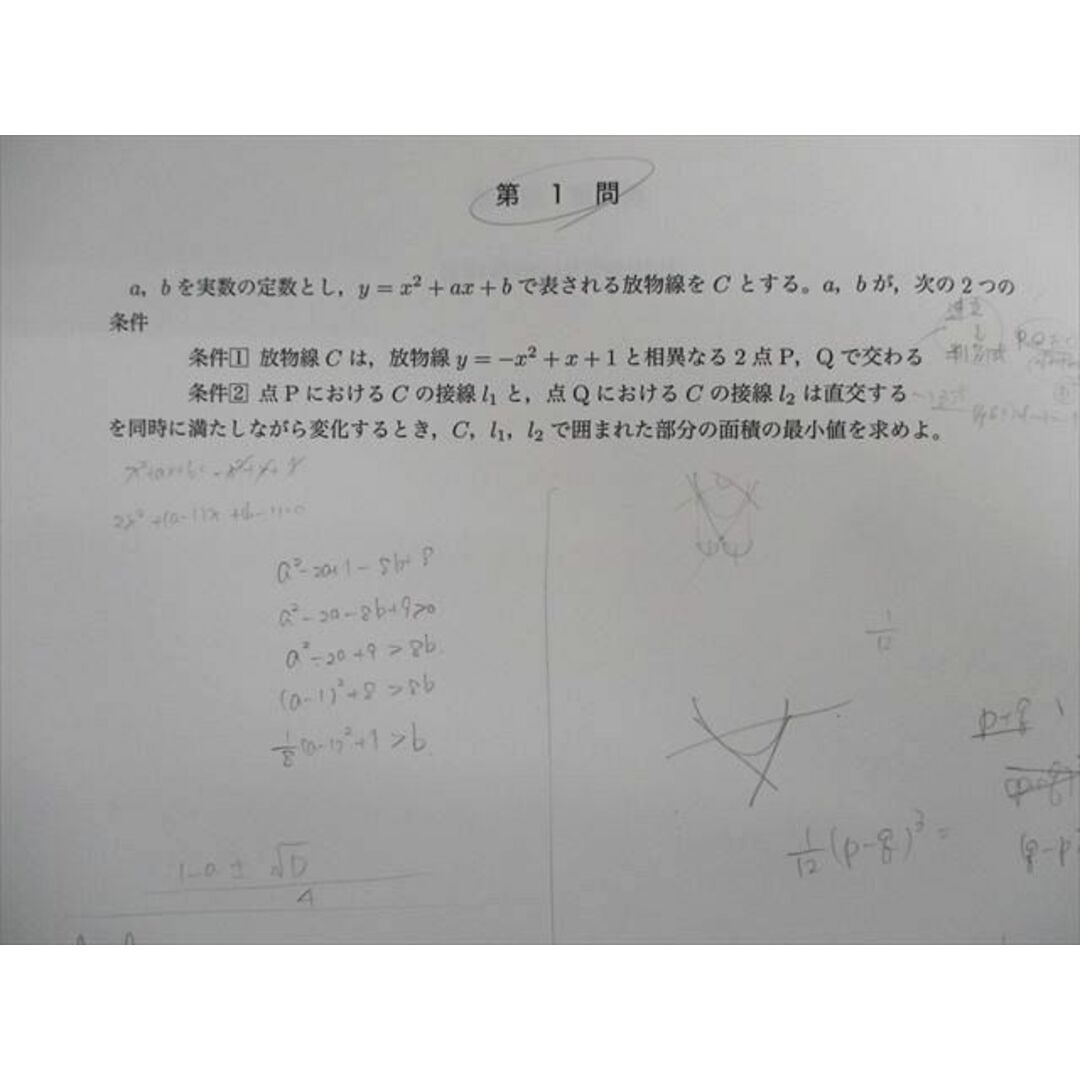 第 1 問
a, b を実数の定数とし, y = x² + ax + b で表される放物線を C とする。a, b が, 次の2つの
条件
条件1 放物線 C は, 放物線 y = −x² + x + 1 と相異なる2点 P, Q で交わる
条件2 点 P における C の接線 l₁ と, 点 Q における C の接線 l₂ は直交する
を同時に満たしながら変化するとき, C, l₁, l₂ で囲まれた部分の面積の最小値を求めよ。
a²-2a+1-8b+8
a²-2a-8b+9>0
a²-2a+9>8b
(a-1)²+8>8b
1/8(a-1)²+1>b
1-a±√D
4
1/12
p+q
1/12(p-q)³=